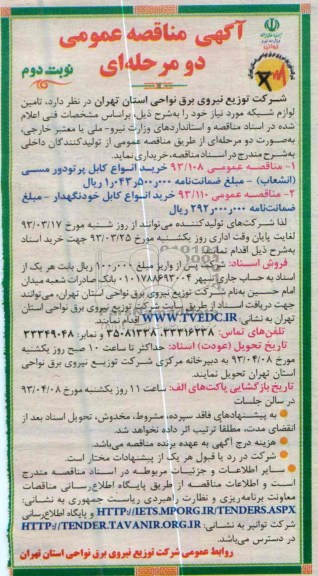 آگهی مناقصه عمومی
دو مرحله‌ای
نوبت دوم
شرکت توزیع نیروی برق نواحی استان تهران در نظر دارد، تامین
لوازم شبکه مورد نیاز خود را به‌شرح ذیل، براساس مشخصات فنی اعلام
شده در اسناد مناقصه و استانداردهای وزارت نیرو- ملی یا معتبر خارجی،
به‌صورت دو مرحله‌ای از طریق مناقصه عمومی از تولیدکنندگان داخلی
به‌شرح مندرج در اسناد مناقصه، خریداری نماید.
۱- مناقصه عمومی ۹۳/۱۰۸ خرید انواع کابل پرتودور مسی
(انشعاب) - مبلغ ضمانت‌نامه ۱٫۰۴۳٫۵۰۰٫۰۰۰ ریال
۲- مناقصه عمومی ۹۳/۱۱۰ خرید انواع کابل خودنگهدار - مبلغ
ضمانت‌نامه ۲۹۲٫۰۰۰٫۰۰۰ ریال
لذا شرکت‌های تولیدکننده می‌توانند از روز شنبه مورخ ۹۳/۰۳/۱۷
لغایت پایان وقت اداری روز یکشنبه مورخ ۹۳/۰۳/۲۵ جهت خرید اسناد
به‌شرح ذیل اقدام نمایند.
فروش اسناد: شرکت پس از واریز مبلغ ۱۰۰٫۰۰۰ ریال بابت هر یک از
اسناد به حساب جاری سپهر ۰۱۰۱۷۸۸۶۹۳۰۰۴ بانک صادرات شعبه میدان
امام حسین به‌نام شرکت توزیع نیروی برق نواحی استان تهران، می‌توانند
جهت دریافت اسناد از طریق سایت شرکت توزیع نیروی برق نواحی استان
تهران به نشانی: WWW.TVEDC.IR اقدام نمایند.
تلفن‌های تماس: ۳۳۳۱۶۳۳۸، ۳۵۰۸۱۳۳۸ و نمابر: ۳۳۳۴۹۰۴۸
تاریخ تحویل (عودت) اسناد: حداکثر تا ساعت ۱۰ صبح روز یکشنبه
مورخ ۹۳/۰۴/۰۸ به دبیرخانه مرکزی شرکت توزیع نیروی برق نواحی
استان تهران تحویل نمایند.
تاریخ بازگشایی پاکت‌های الف: ساعت ۱۱ روز یکشنبه مورخ ۹۳/۰۴/۰۸
در سالن جلسات
به پیشنهادهای فاقد سپرده، مشروط، مخدوش، تحویل اسناد بعد از
انقضای مدت، مطلقا ترتیب اثر داده نخواهد شد.
هزینه درج آگهی به عهده برنده مناقصه می‌باشد.
شرکت در رد یا قبول هر یک از پیشنهادات مختار است.
سایر اطلاعات و جزئیات مربوطه در اسناد مناقصه مندرج
است و اطلاعات مناقصه از طریق پایگاه اطلاع‌رسانی مناقصات
معاونت برنامه‌ریزی و نظارت راهبردی ریاست جمهوری به نشانی:
HTTP://IETS.MPORG.IR/TENDERS.ASPX و پایگاه اطلاع‌رسانی
شرکت توانیر به نشانی: HTTP://TENDER.TAVANIR.ORG.IR
در دسترس می‌باشد.
روابط عمومی شرکت توزیع نیروی برق نواحی استان تهران